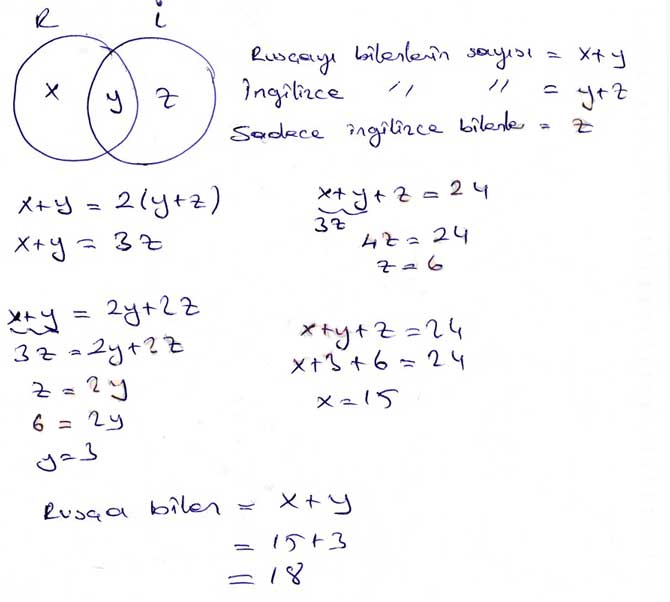 R İ
x y z
Rusçayı bilenlerin sayısı = x+y
İngilizce // // = y+z
Sadece ingilizce bilenler = z
x+y = 2(y+z)
x+y = 3z
x+y+z = 24
3z
4z = 24
z = 6
x+y = 2y+2z
3z = 2y+2z
z = 2y
6 = 2y
y=3
x+y+z=24
x+3+6=24
x=15
Rusça bilen = x+y
= 15+3
= 18